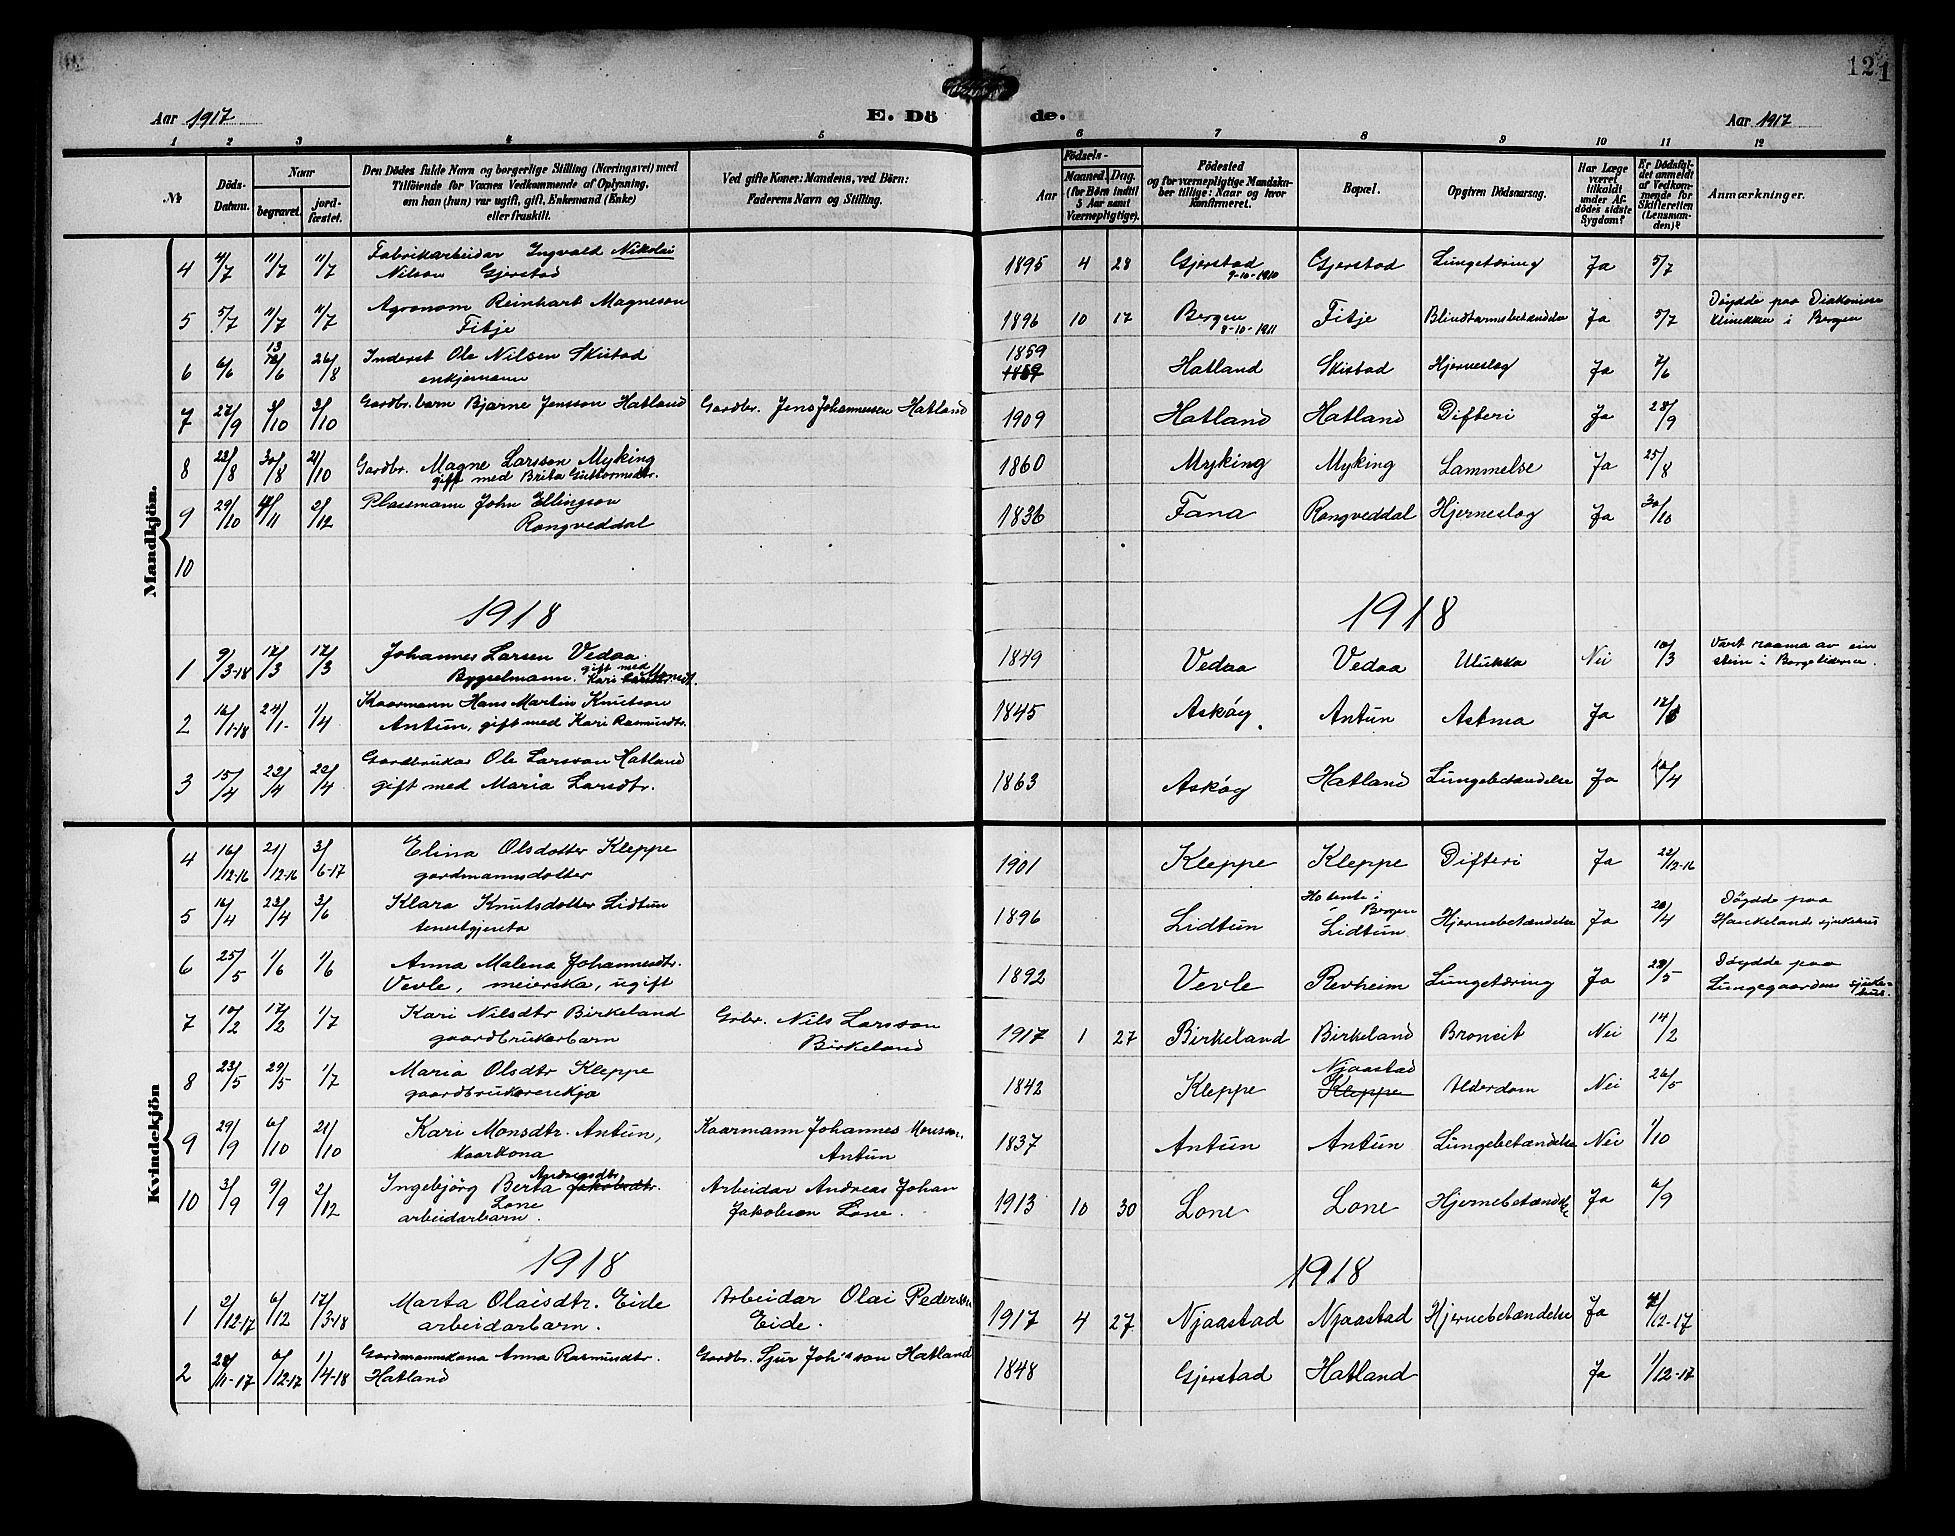 121
Aar 1917
E. Döde.
Aar 1917
1 2 3 4 5 6 7 8 9 10 11 12
No
Döds-Datum.
Naar
begravet.
jord-fæstet.
Den Dödes fulde Navn og borgerlige Stilling (Næringsvei) med
Tilföiende for Voxnes Vedkommende af Oplysning,
om han (hun) var ugift, gift, Enkemand (Enke)
eller fraskilt.
Ved gifte Koner: Mandens, ved Börn:
Faderens Navn og Stilling.
Födsels-
Aar
Maaned. Dag.
(for Börn indtil
5 Aar samt
Værnepligtige).
Födested
og for værnepligtige Mandska-
ber tillige: Naar og hvor
konfirmeret.
Bopæl.
Opgiven Dödsaarsag.
Har Læge
været
tilkaldt
under Af-
dödes sidste
Sygdom?
Er Dödsfal-
det anmeldt
af Vedkom-
mende for
Skifteretten
(Lensman-
den)?
Anmærkninger.
Mandkjön.
4 4/7 11/7 11/7 Fabrikarbeidar Ingvald Nikolai
Nilson Gjerstad 1895 4 28 Gjerstad 9-10-1910 Gjerstad Lungetæring Ja 5/7
5 5/7 11/7 11/7 Agronom Reinhart Magneson
Fitje 1896 10 17 Bergen 8-10-1911 Fitje Blindtarmsbetændelse Ja 5/7 Döydde paa Diakonisse
klinikken i Bergen
6 6/6 13/6 26/8 Inderst Ole Nilsen Skistad
enkjemann 1859 Hatland Skistad Hjerneslag Ja 7/6
7 27/9 3/10 3/10 Gardbr. barn Bjarne Jensson Hatland Gardbr. Jens Johannessen Hatland 1909 Hatland Hatland Difteri Ja 28/9
8 23/8 30/8 21/10 Gardbr. Magne Larsson Myking
gift med Brita Guttormsdtr. 1860 Myking Myking Lammelse Ja 25/8
9 29/10 /11 2/12 Plassmann John Ellingson
Rongveddal 1836 Fana Rongveddal Hjerneslag Ja 30/10
10
1918 1918
1 9/3-18 17/3 17/3 Johannes Larsen Vedaa.
Bygselmann. gift med
Kari Monsdt. 1849 Vedaa Vedaa Ulukka Nei 10/3 Vart raama av ein
stein i Borgeliderne.
2 16/1-18 24/1- 1/4 Kaarmann Hans Martin Knutson
Antun, gift med Kari Rasmundtr. 1845 Askøy Antun Astma Ja
3 15/4 22/4 22/4 Gardbrukar Ole Larsson Hatland
gift med Maria Larsdtr. 1863 Askøy Hatland Lungebetændelse Ja /4
Kvindekjön
4 16/12-16 21/12-16 3/6-17 Elina Olsdotter Kleppe
gardmannsdotter 1901 Kleppe Kleppe Difteri Ja 22/12-16
5 16/4 23/4 3/6 Klara Knutsdotter Lidtun
tenestgjenta 1896 Lidtun Ho tente i
Bergen
Lidtun Hjernebetændelse Ja 20/4 Döydde paa
Haukeland sjukehus
6 25/5 1/6 1/6 Anna Malena Johannesdtr.
Vevle, meierska, ugift 1892 Vevle Revheim Lungetæring Ja 28/5 Döydde paa
Lungegaardens sjuke-
hus.
7 10/2 17/2 1/7 Kari Nilsdtr Birkeland
gaardbrukarbarn Grbr. Nils Larsson
Birkeland 1917 1 27 Birkeland Birkeland Bronsit Nei 14/2
8 23/5 29/5 1/7 Maria Olsdtr Kleppe
gaardbrukarenkja 1842 Kleppe Njaastad
Kleppe Alderdom Nei 26/5
9 29/9 6/10 21/10 Kari Monsdtr. Antun,
kaarkona Kaarmann Johannes Monsson
Antun 1837 Antun Antun Lungebetændelse Nei 1/10
10 3/9 9/9 2/12 Ingebjörg Berta Andreasdtr. Jakobsdtr.
Lone
arbeidarbarn. Arbeidar Andreas Johan
Jakobson Lone. 1913 10 30 Lone Lone Hjernebetændelse Ja 6/9
1918 1918
1 2/12-17 6/12 17/3-18 Marta Olaisdtr. Eide
arbeidarbarn. Arbeidar Olai Pedersson
Eide. 1917 4 27 Njaastad Njaastad Hjernebetændelse Ja /12-17
2 28/11-17 6/12-17 1/4-18 Gardmannskona Anna Rasmundtr.
Hatland Gardbr. Sjur Joh's son Hatland 1848 Gjerstad Hatland Ja 1/12-17